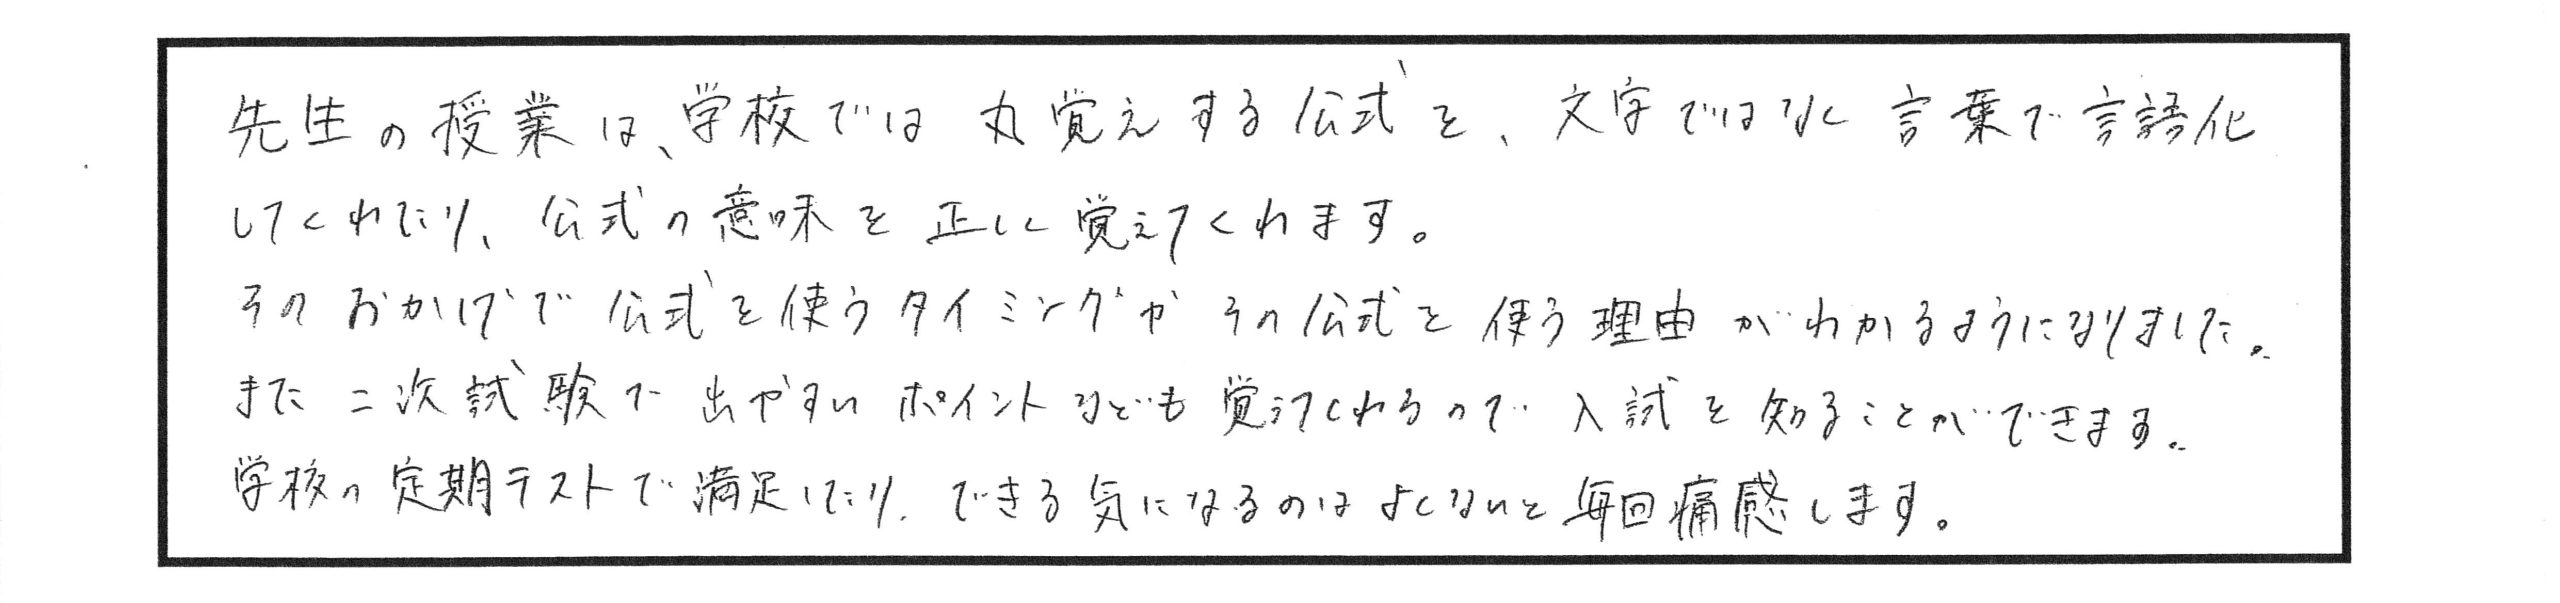 先生の授業は、学校では丸覚えする公式を、文字ではなく言葉で言語化
してくれたり、公式の意味を正しく覚えてくれます。
そのおかげで公式を使うタイミングやその公式を使う理由がわかるようになりました。
また二次試験で出やすいポイントなども覚えてくれるので入試を知ることができます。
学校の定期テストで満足したり、できる気になるのはよくないと毎回痛感します。